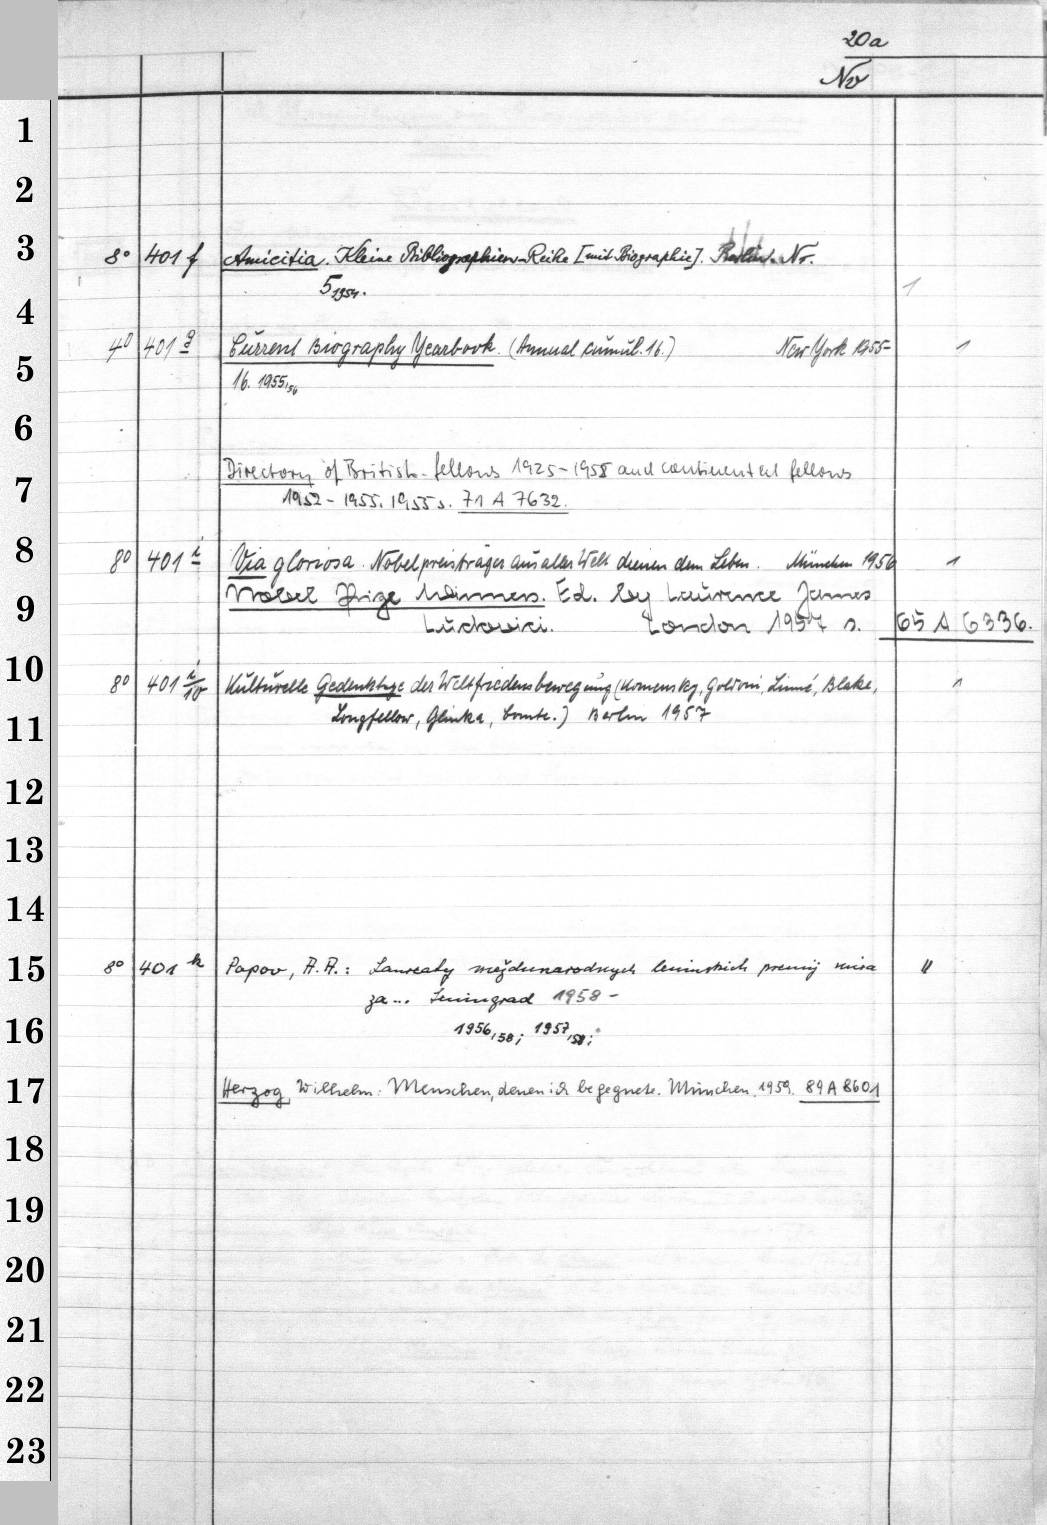 20a
Nv
1
2
3 8° 401 f Amicitia. Kleine Bibliographien-Reihe [mit Biographie]. Berlin. Nr.
5 1954. 1
4
4° 401 g Current Biography Yearbook. (Annual cumul. 16.) New York 1955- 1
5 16. 1955/56
6
Directory of British fellows 1925-1958 and continental fellows
7 1952-1955. 1955 s. 71 A 7632.
8 8° 401 i Via gloriosa. Nobelpreisträger aus aller Welt dienen dem Leben. München 1956 1
9 Nobel Prize Winners. Ed. by Laurence James
Ludovici. London 1957 s. 65 A 6336.
10 8° 401 i/10 Kulturelle Gedenktage der Weltfriedensbewegung (Komensky, Goldoni, Linné, Blake, 1
11 Longfellow, Glinka, Comte.) Berlin 1957
12
13
14
15 8° 401 k Popov, A. A.: Laureaty meždunarodnych leninskich premij mira "
za... Leningrad 1958-
16 1956/58; 1957/58;
17 Herzog, Wilhelm: Menschen, denen ich begegnete. München. 1959. 89 A 8601
18
19
20
21
22
23